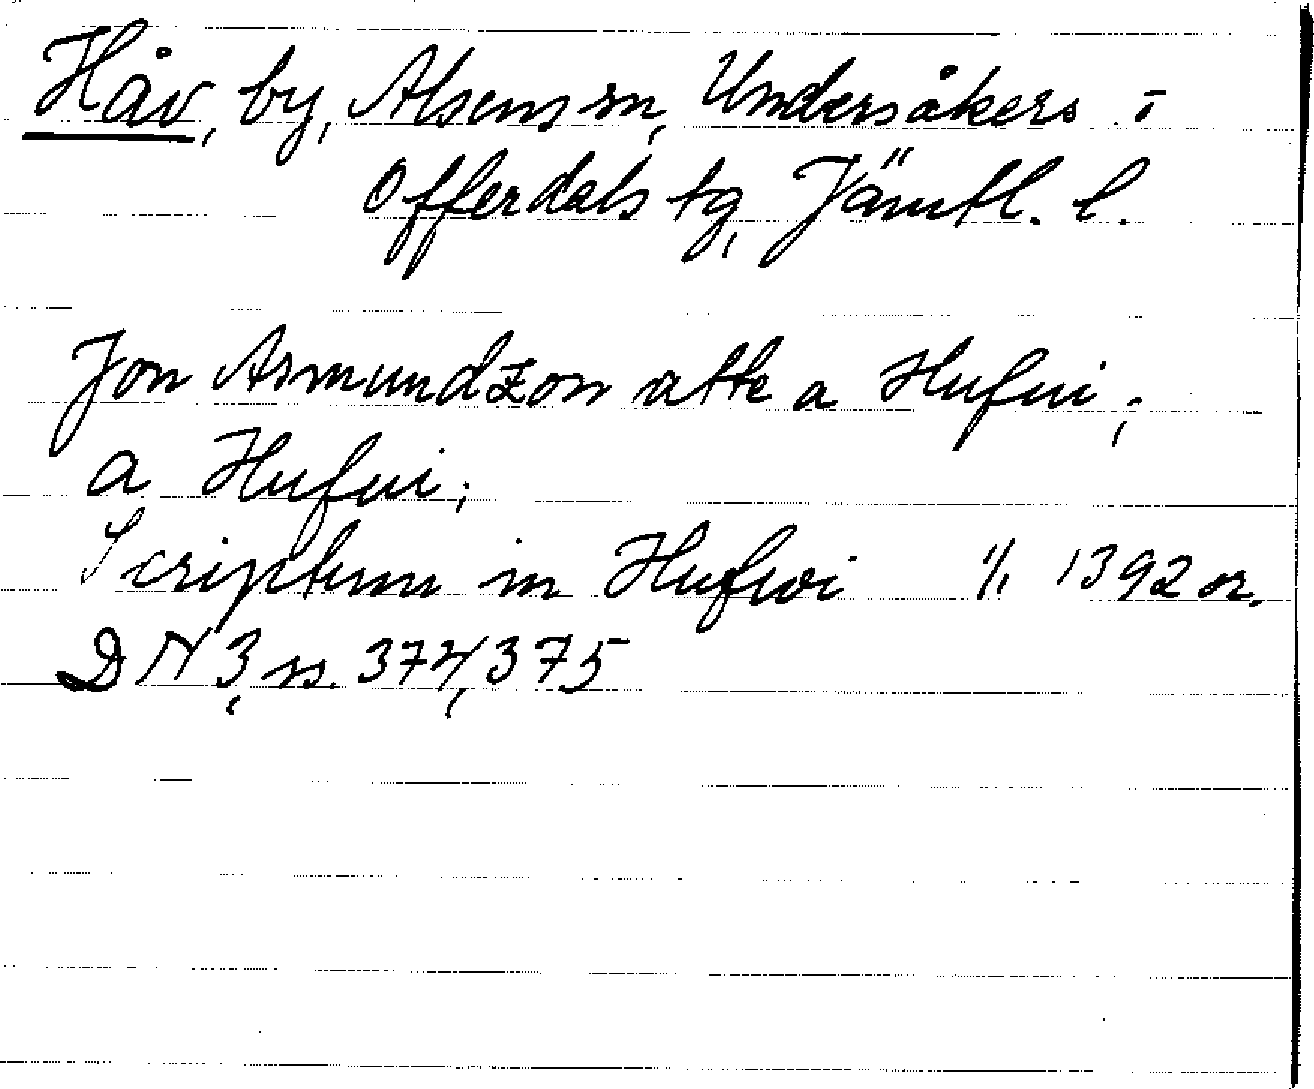 Håv, by, Alsens sn, Undersåkers o
Offerdals tg, Jämtl. l.
Jon Asmundzon atte a Hufui;
a Hufui;
Scriptum in Hufwi 1/1 1392 or.
DN 3, ss. 374, 375